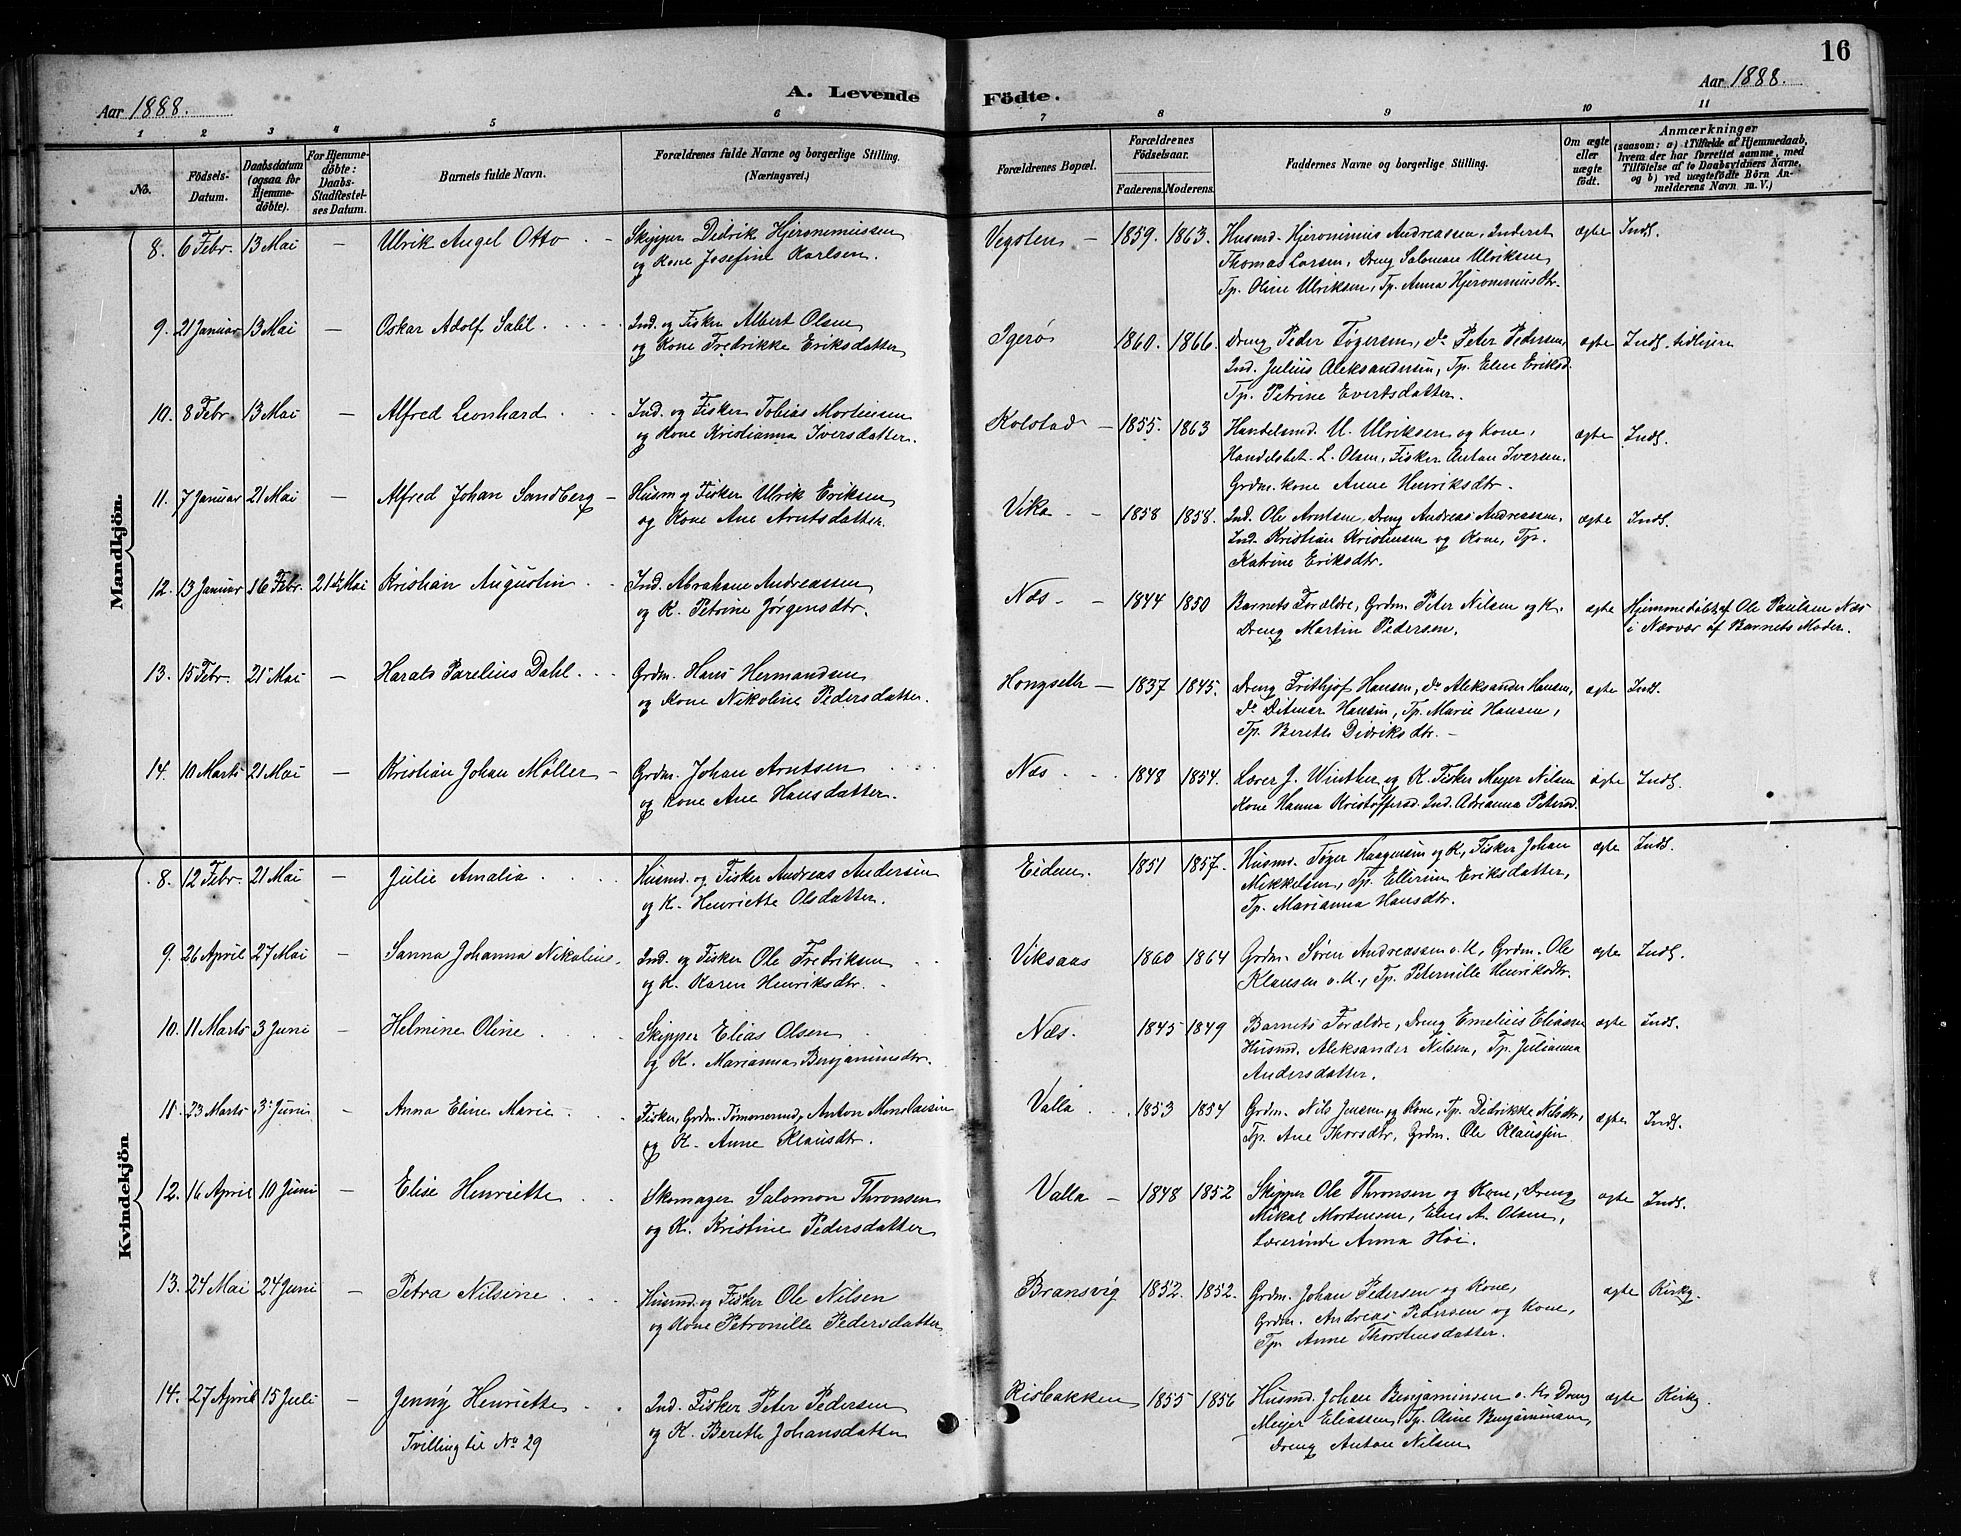 16
Aar 1888.
A. Levende Födte.
Aar 1888.
1 2 3 4 5 6 7 8 9 10 11
No.
Födsels-Datum.
Daabsdatum (ogsaa for Hjemme-döbte).
For Hjemme-döbte: Daabs-Stadfæstel-ses Datum.
Barnets fulde Navn.
Forældrenes fulde Navne og borgerlige Stilling. (Næringsvei.)
Forældrenes Bopæl.
Forældrenes Födselsaar.
Faderens. Moderens.
Faddernes Navne og borgerlige Stilling.
Om ægte eller uægte födt.
Anmærkninger
(saasom: a) i Tilfælde af Hjemmedaab, hvem der har forrettet samme, med Tilföielse af to Daabsvidners Navne, og b) ved uægtefödte Börn An-melderens Navn m. V.)
Mandkjön.
8. 6 Febr. 13 Mai — Ulrik Angel Otto - - Skipper Didrik Hjeronimussen Vegsten — 1859. 1863. Husmd. Hjeronimus Andreassen, Inderet ægte Indl.
og Kone Josefine Karlsen. Thomas Larsen, Dreng Salomon Ulriksen
Tp. Oline Ulriksen, Tp. Anna Hjeronimusdtr.
9. 21 Januar 13 Mai — Oskar Adolf Sahl . . . . Ind. og Fisker Albert Olsen Igerö 1860. 1866. Dreng Peder Tøgersen, do Peter Pedersen ægte Indl. tidligere
og Kone Fredrikke Eriksdatter Ind. Julius Aleksandersen, Tp. Elen Eriksd.
Tp. Petrine Evertsdatter.
10. 8 Febr. 13 Mai — Alfred Leonhard . . . Ind. og Fisker Tobias Mortensen Kolstad — 1855. 1863 Handelsmd. U. Ulriksen og Kone, ægte Indl.
og Kone Kristianna Iversdatter. Handelsbet. L. Olsen, Fisker Anton Iversen.
Grdm. kone Anne Henriksdtr.
11. 7 Januar 21 Mai — Alfred Johan Sandberg — Husm og Fisker Ulrik Eriksen Vika - - 1858 1858. Ind. Ole Arntsen, Dreng Andreas Andreassen, ægte Indl.
og Kone Ane Arntsdatter. Ind. Kristian Kristensen og Kone, Tp.
Katrine Eriksdtr.
12. 13 Januar 16 Febr. 21de Mai Kristian Augustin . . Ind. Abraham Andreassen Næs - - 1844 1850 Barnets Forældre, Grdm. Peter Nilsen og K. ægte Hjemmedøbt af Ole Paulsen Næs
og K. Petrine Jörgensdtr. Dreng Martin Pedersen. i Nærvær af Barnets Moder.
13. 15 Febr. 21 Mai — Harald Parelius Dahl . . Grdm. Hans Hermandsen Hongseth — 1837 1845. Dreng Frithjof Hansen, do Aleksander Hansen, ægte Indl.
og Kone Nikoline Pedersdatter. do Ditmar Hansen, Tp. Marie Hansen,
Tp. Berethe Didriksdtr. —
14. 10 Marts 21 Mai — Kristian Johan Møller — Grdm. Johan Arntsen Næs . . 1848 1854. Lærer J. Winther og K. Fisker Meyer Nilsen ægte Indl.
og Kone Ane Hansdatter. Kone Hanna Kristoffersd. Ind. Adrianna Petersd.
Kvindekjön.
8. 12 Febr. 21 Mai — Julie Amalia . . . . Husmd. og Fisker Andreas Andersen Eidem. 1851 1857. Husmd. Tøger Haagensen og K., Fisker Johan ægte Indl.
og K. Henriette Olsdatter. Mikkelsen, Tp. Ellerine Eriksdatter,
Tp. Marianna Hansdtr.
9. 26 April 27 Mai — Sanna Johanna Nikoline. Ind. og Fisker Ole Fredriksen Viksaas 1860 1864 Grdm. Sören Andreassen o. K, Grdm. Ole ægte Indl.
og K. Karen Henriksdtr. - Klausen o. K., Tp. Peternille Henriksdtr.
10. 11 Marts 3 Juni — Helmine Oline . . . Skipper Elias Olsen Næs. 1845 1849 Barnets Forældre, Dreng Emelius Eliassen ægte Indl.
og K. Marianna Benjaminsdtr. Husmd. Aleksander Nilsen, Tp. Julianna
Andersdatter.
11. 23 Marts 3 Juni — Anna Eline Marie . . Fisker, Grdm. Tømmermd, Anton Menlausen Valla . . 1853 1854 Grdm. Nils Jensen og Kone, Tp. Didrikke Nilsdtr, ægte Indl.
og K. Anne Klausdtr. Tp. Ane Thorsdtr, Grdm. Ole Klaussen
12. 16 April 10 Juni — Elise Henriette . . Skomager Salomon Thronsen Valla — 1848 1852 Skipper Ole Thronsen og Kone, Dreng ægte Indl.
og K. Kristine Pedersdatter Mikal Mortensen, Elen A. Olsen,
Lærerinde Anna Høi.
13. 24 Mai 24 Juni — Petra Nilsine . . . Husmd. og Fisker Ole Nilsen Bransvig 1852. 1852. Grdm. Johan Pedersen og Kone, ægte Kirkg.
og Kone Petronille Pedersdatter Grdm. Andreas Pedersen og Kone,
Tp. Anne Thorstensdatter.
14. 27 April 15 Juli — Jenny Henriette . . Ind. Fisker Peter Pedersen Risbakken 1855 1856 Husmd. Johan Benjaminsen o. K. Dreng ægte Kirkg.
Tvilling til No 29 og K. Berethe Johansdatter Meyer Eliassen, Tp. Oline Benjaminsen,
Dreng Anton Nilsen